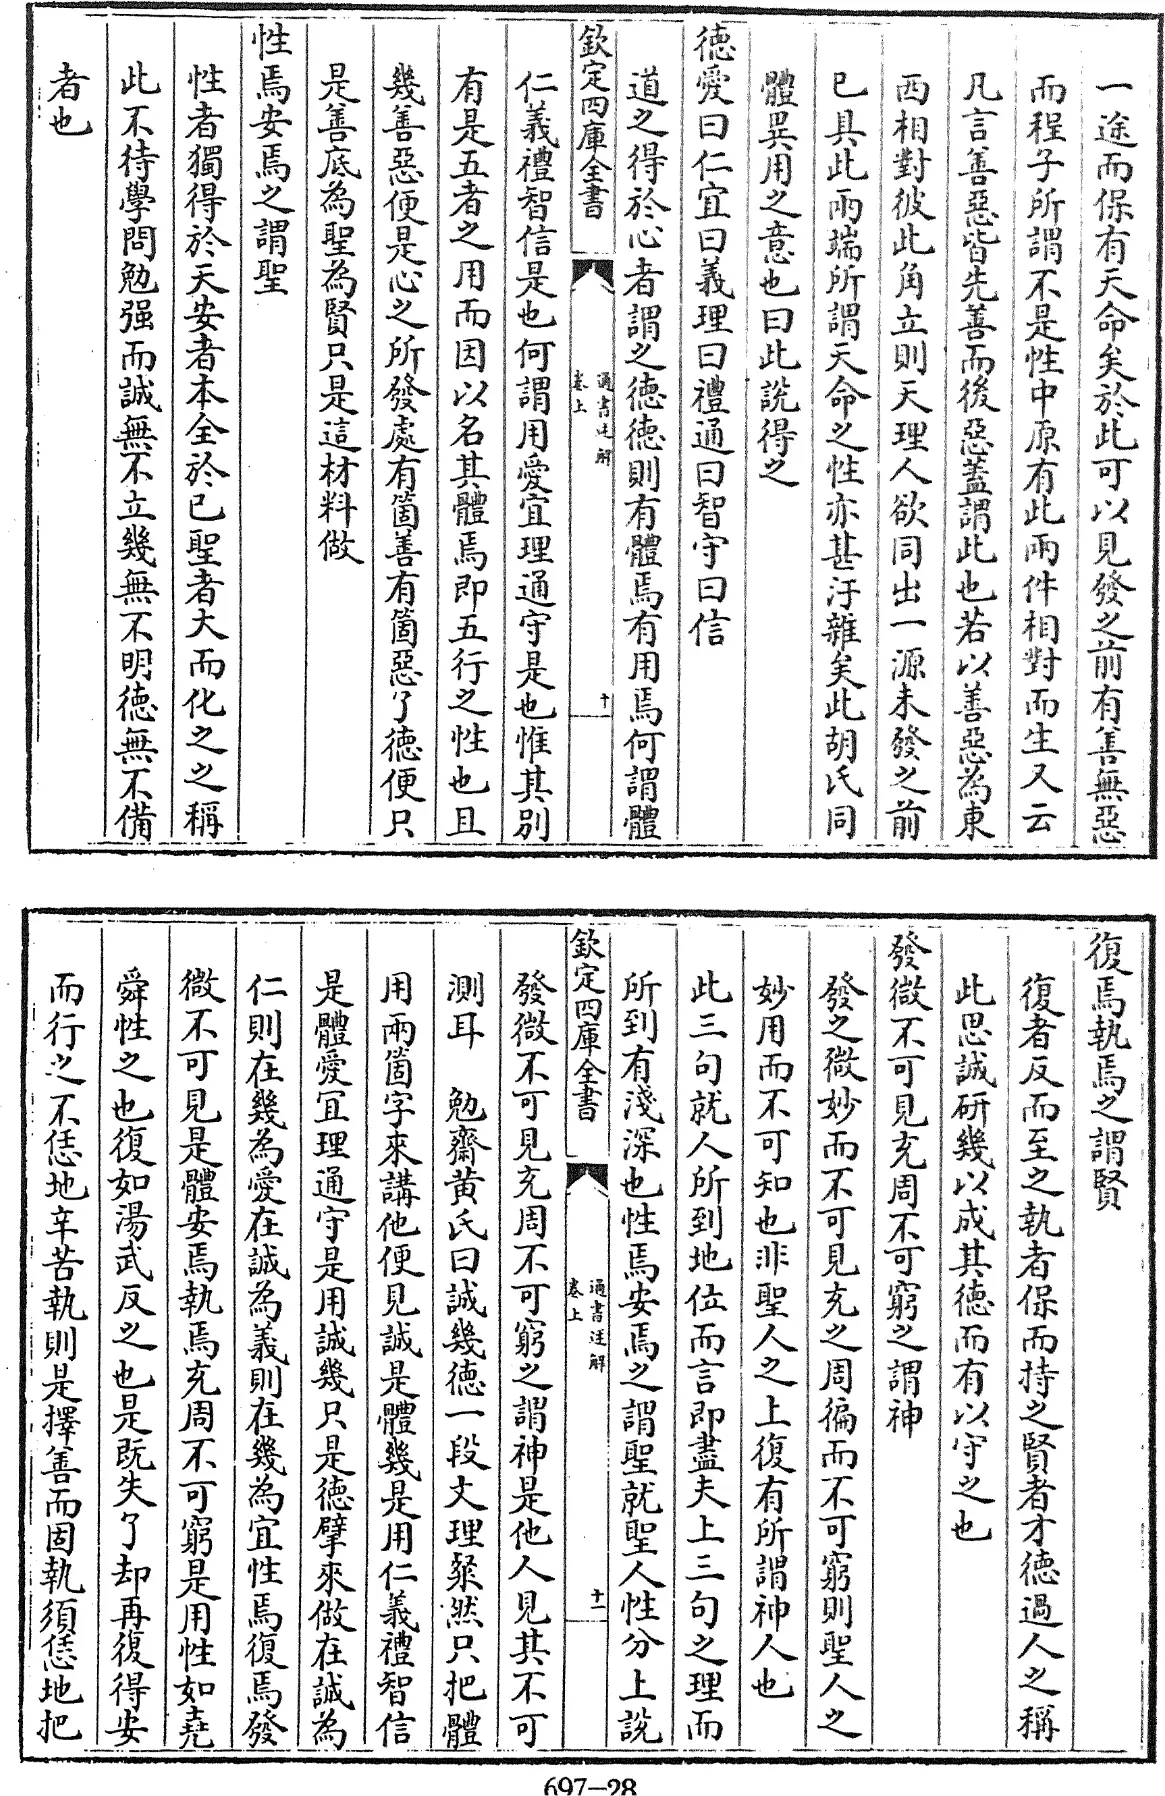 一途而保有天命矣於此可以見發之前有善無惡
而程子所謂不是性中原有此兩件相對而生又云
凡言善惡皆先善而後惡蓋謂此也若以善惡為東
西相對彼此角立則天理人欲同出一源未發之前
已具此兩端所謂天命之性亦甚汙雜矣此胡氏同
體異用之意也曰此說得之
德愛曰仁宜曰義理曰禮通曰智守曰信
道之得於心者謂之德德則有體焉有用焉何謂體
欽定四庫全書
通書述解
卷上
十
仁義禮智信是也何謂用愛宜理通守是也惟其別
有是五者之用而因以名其體焉即五行之性也且
幾善惡便是心之所發處有箇善有箇惡了德便只
是善底為聖為賢只是這材料做
性焉安焉之謂聖
性者獨得於天安者本全於已聖者大而化之之稱
此不待學問勉强而誠無不立幾無不明德無不備
者也
復焉執焉之謂賢
復者反而至之執者保而持之賢者才德過人之稱
此思誠研幾以成其德而有以守之也
發微不可見充周不可窮之謂神
發之微妙而不可見充之周徧而不可窮則聖人之
妙用而不可知也非聖人之上復有所謂神人也
此三句就人所到地位而言即盡夫上三句之理而
所到有淺深也性焉安焉之謂聖就聖人性分上說
欽定四庫全書
通書述解
卷上
十一
發微不可見充周不可窮之謂神是他人見其不可
測耳　勉齋黃氏曰誠幾德一段文理粲然只把體
用兩箇字來講他便見誠是體幾是用仁義禮智信
是體愛宜理通守是用誠幾只是德擘來做在誠為
仁則在幾為愛在誠為義則在幾為宜性焉復焉發
微不可見是體安焉執焉充周不可窮是用性如堯
舜性之也復如湯武反之也是既失了却再復得安
而行之不恁地辛苦執則是擇善而固執須恁地把
697-28